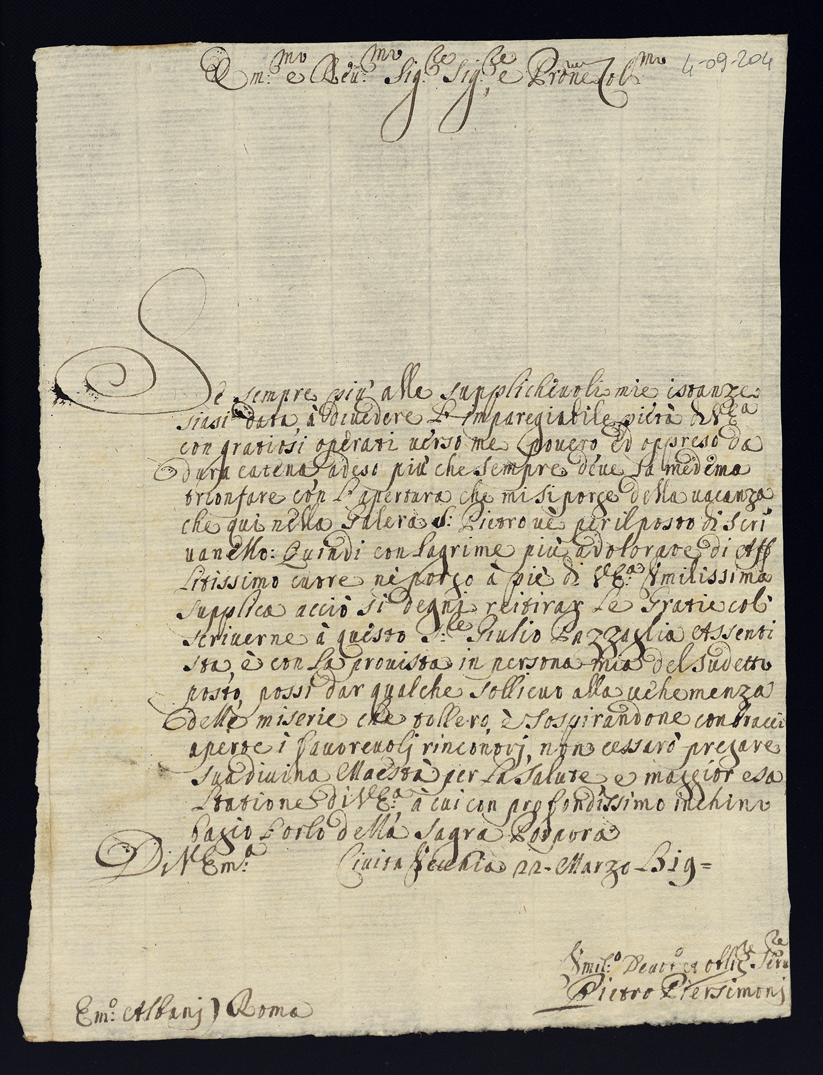 Em:mo e Reu:mo Sig:re Sig:re e Prōne Col:mo 4-09-204
Se sempre più alle supplicheuoli mie istanze
siasi data à diuedere l'Imparegiabile pietà di VE:a
con gratiosi operati uerso me pouero ed oppreso da
dura catena, adeso più che sempre deue la medēma
trionfare con l'apertura che mi si porge della uacanza
che qui nella Galera S: Pietro uè per il posto di scri
uanello: Quindi con lagrime più adolorate di Aff
litissimo cuore nè porgo à piè di VE:a Vmilissima
supplica acciò si degni reitirar le Gratie coll'
scriuerne à questo S:re Giulio Pazzaglia Assenti
sta, è con la prouista in persona mia del sudetto
posto, possi dar qualche sollieuo alla uehemenza
delle miserie che tollero, è sospirandone con bracci
aperte i fauoreuoli rincontri, non cessarò pregare
sua diuina Maestà per la salute e maggior esa
ltatione di VE:a à cui con profondissimo inchino
bagio l'orlo della sagra Porpora
Di V Em:a Ciuita Vecchia 22 Marzo 1719=
Vmil:o Deuot:o et obli:re Seru:re
Pietro Piersimonj
Em:o Albanj) Roma